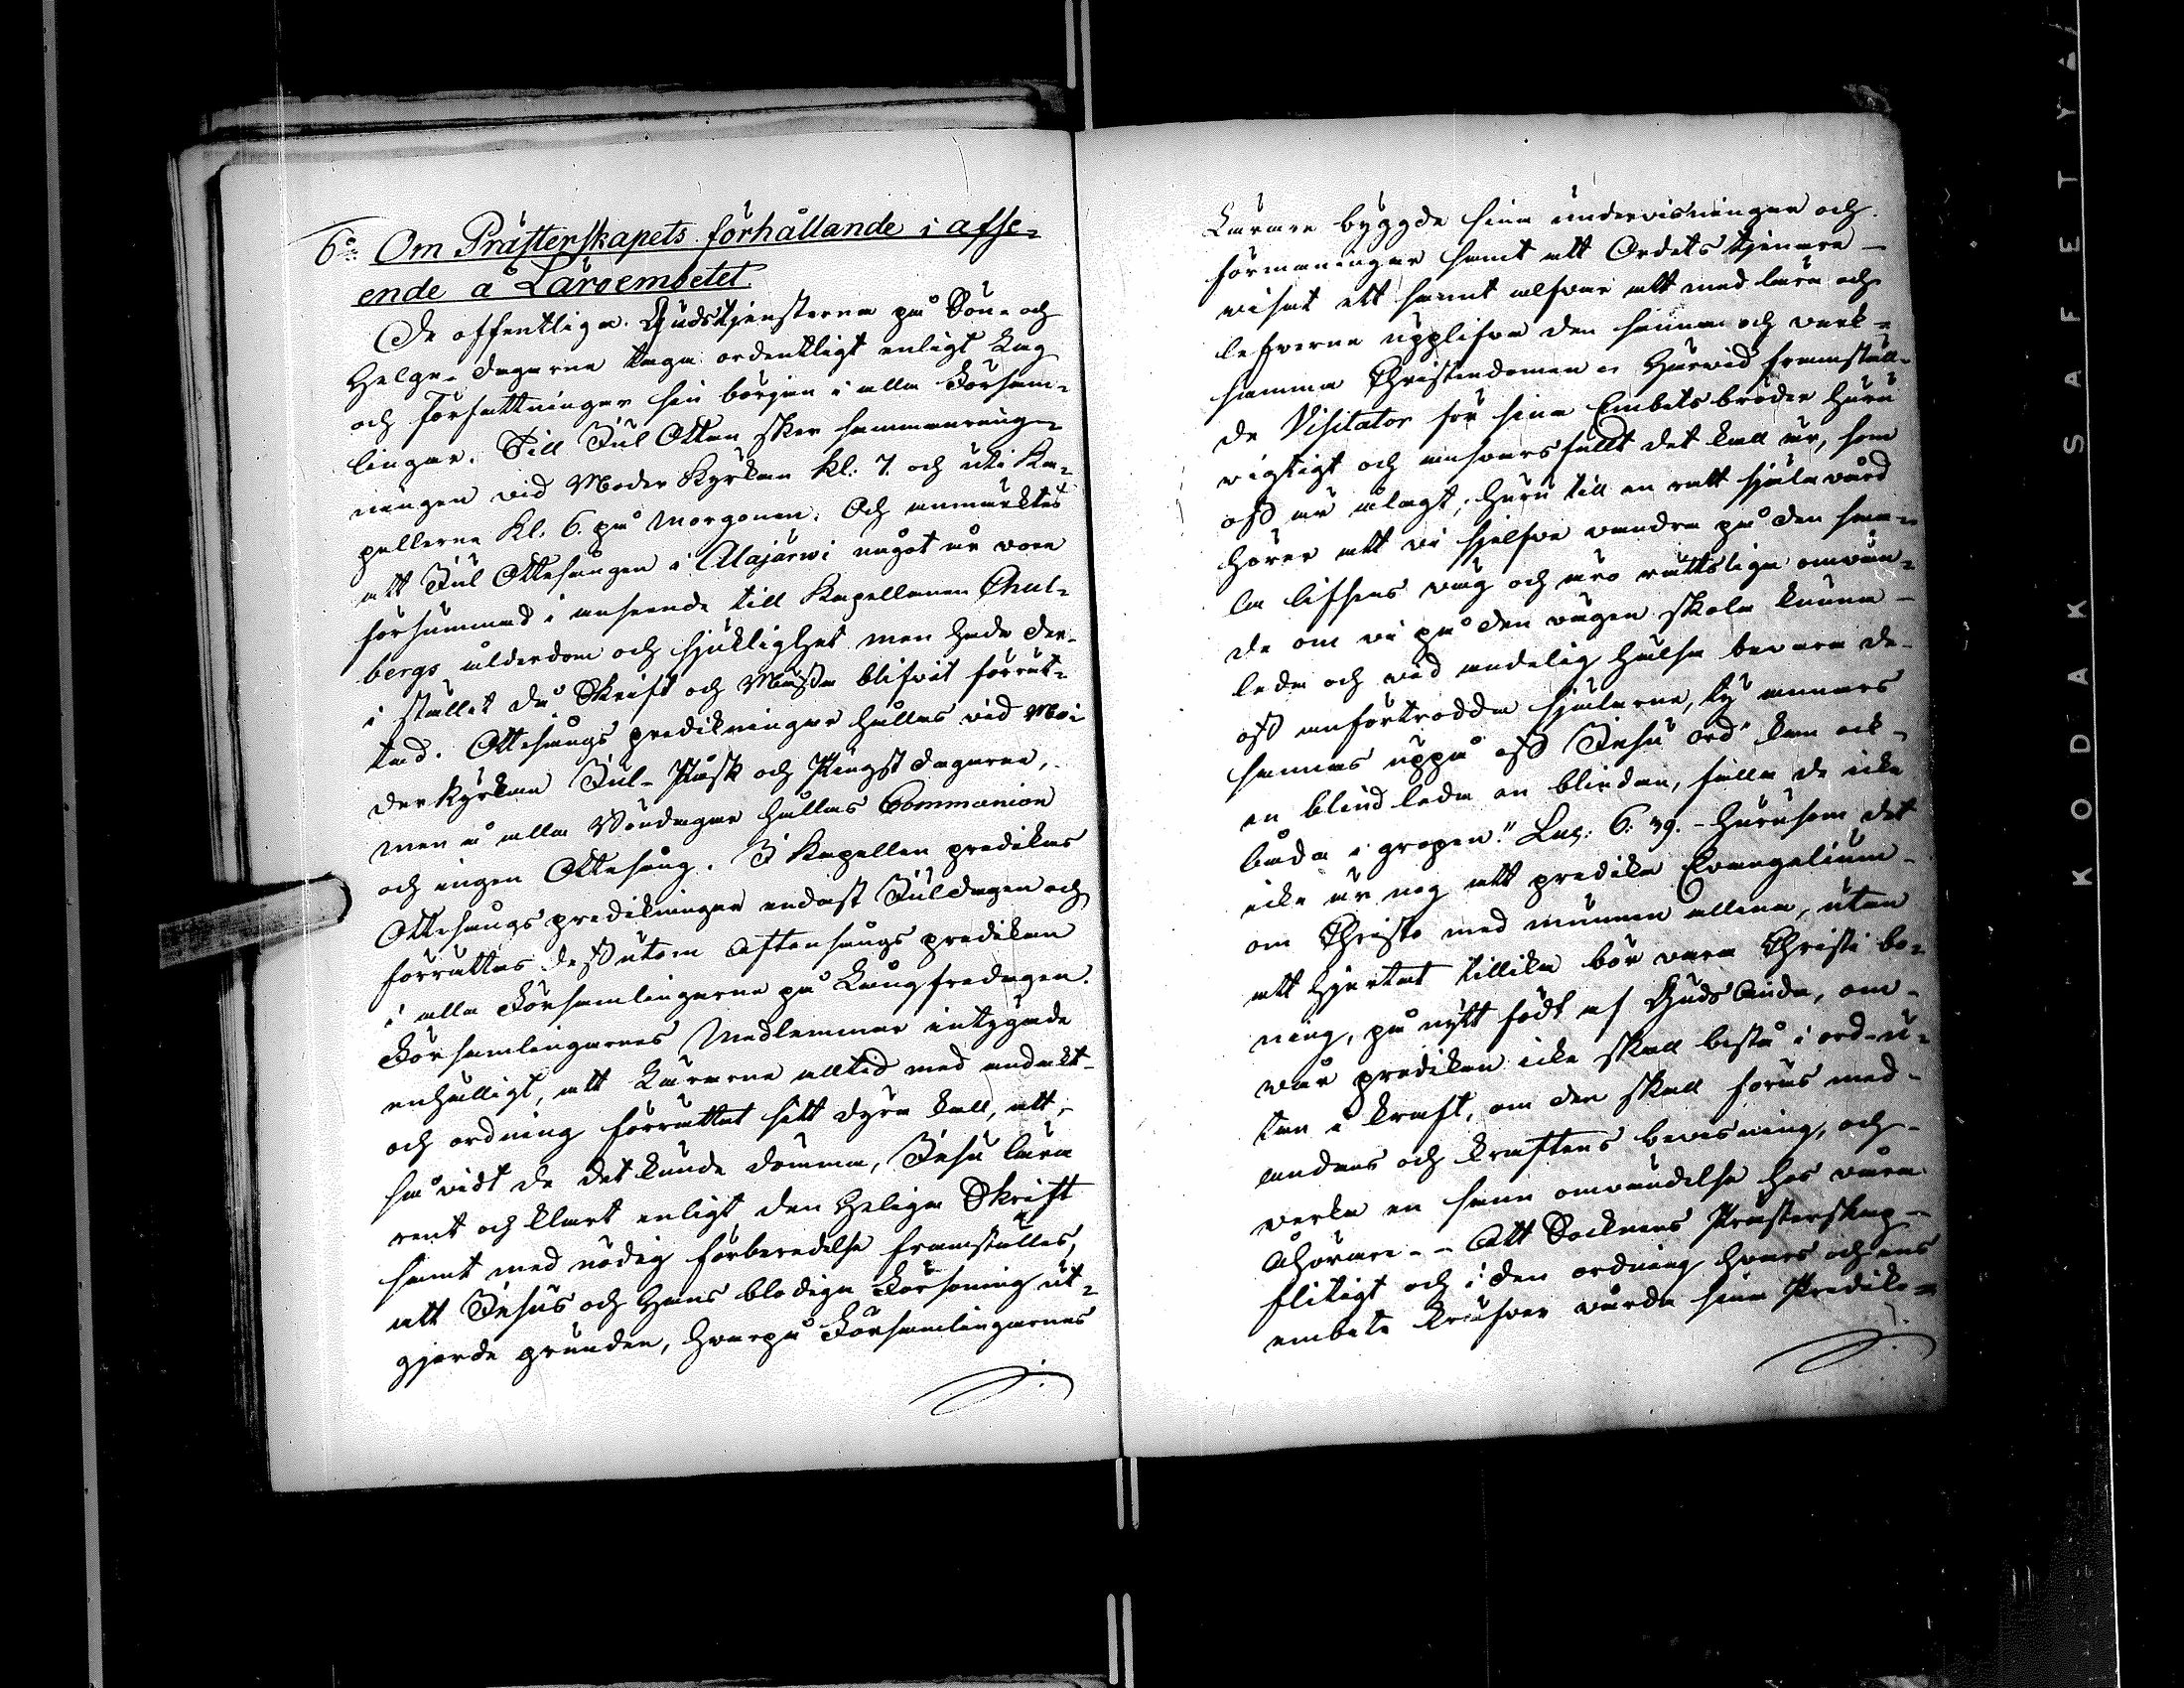 6:o Om Prästerskapets förhållande i afse-
ende å Läroembetet.
De offentliga Gudstjensterna på Sön- och
Helge-dagarne taga ordentligt enligt Lag
och Författningar sin början i alla Försam-
lingar. Till Jul Ottan sker sammanring-
ningen vid Moder Kyrkan Kl: 7. och uti Ka-
pellerne Kl. 6. på Morgonen. Och anmärktes
att Jul Ottesången i Alajärwi något år vore
försummad i anseende till Kapellanen
bergs ålderdom och sjuklighet men hade der-
i stället då Skrift och Messa blifvit förrät-
tad. Ottesångs predikningar hållas vid Mo-
derkyrkan Jul- Påsk och Pingst dagarne,
men å alla Söndagar hålles Communion
och ingen Ottesång. I Kapellen predikas
Ottesångs predikningar endast Juldagen och
förrättas dessutom Aftonsångs predikan
i alla Församlingarne på Långfredagen.
Församlingarnes Medlemmar intygade
enhälligt, att Lärarne alltid med andakt
och ordning förrättat sitt dyra kall, att,
så vidt de det kunde dömma, Jesu lära
rent och klart enligt den Heliga Skrift
samt med nödig förberedelse framställes,
att Jesus och Hans blodiga Försoning ut-
gjorde grunden, hvarpå Församlingarnes
Lärare byggde sina undervisningar och
förmaningar samt att Ordets tjenare
visat ett sannt alfvar att med lära och
lefverne upplifva den sanna och verk-
samma Christendomen. Härvid framställ-
de Visitator för sina Embetsbröder huru
vigtigt och ansvarsfullt det kall är, som
oss är ålagt; huru till en rätt själavård
hörer att vi sjelfve vandra på den sma-
la lifsens väg och äro rättsliga omvän-
de om vi på den vägen skola kunna
leda och vid andelig hälsa bevara de
oss anförtrodda själarne, ty annars
sannas uppå oss Jesu ord" kan ock
en blind leda en blindan, falla de icke
båda i gropen." Luc: 6: 39. - Hurusom det
icke är nog att predika Evangelium
om Christo med munnen allena, utan
att hjertat tillika bör vara Christi bo-
ning, på nytt födt af Guds Anda, om
vår predikan icke skall bestå i ord u-
tan i kraft, om den skall föras med
andans och kraftens bevisning, och
verka en sann omvändelse hos våra
Åhörare. - Att Socknens Prästerskap
flitigt och i den ordning hvars och ens
embete kräfver vårda sina Prediko-